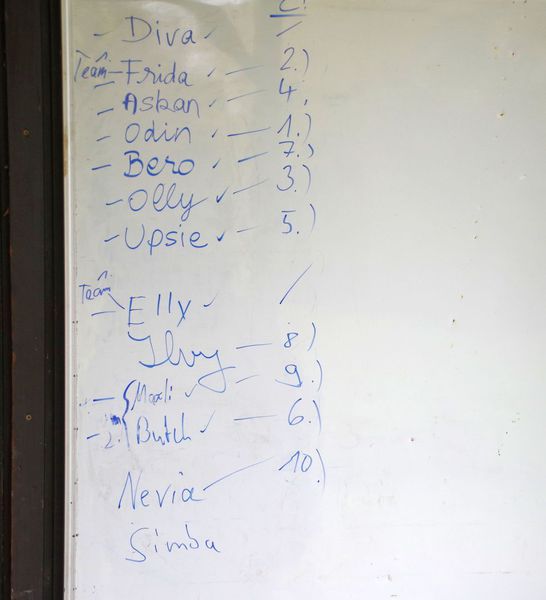 C!
- Diva - /
Team - Frida ✓ - 2.)
- Askan ✓ - 4.
- Odin ✓ - 1.)
- Bero ✓ - 7.)
- Olly ✓ - 3.)
- Upsie ✓ - 5.)
Team
- Elly ✓ /
Ilvy - 8)
- Maxli ✓ - 9.)
- 2.) Butch ✓ - 6.)
Nevia - 10)
Simba